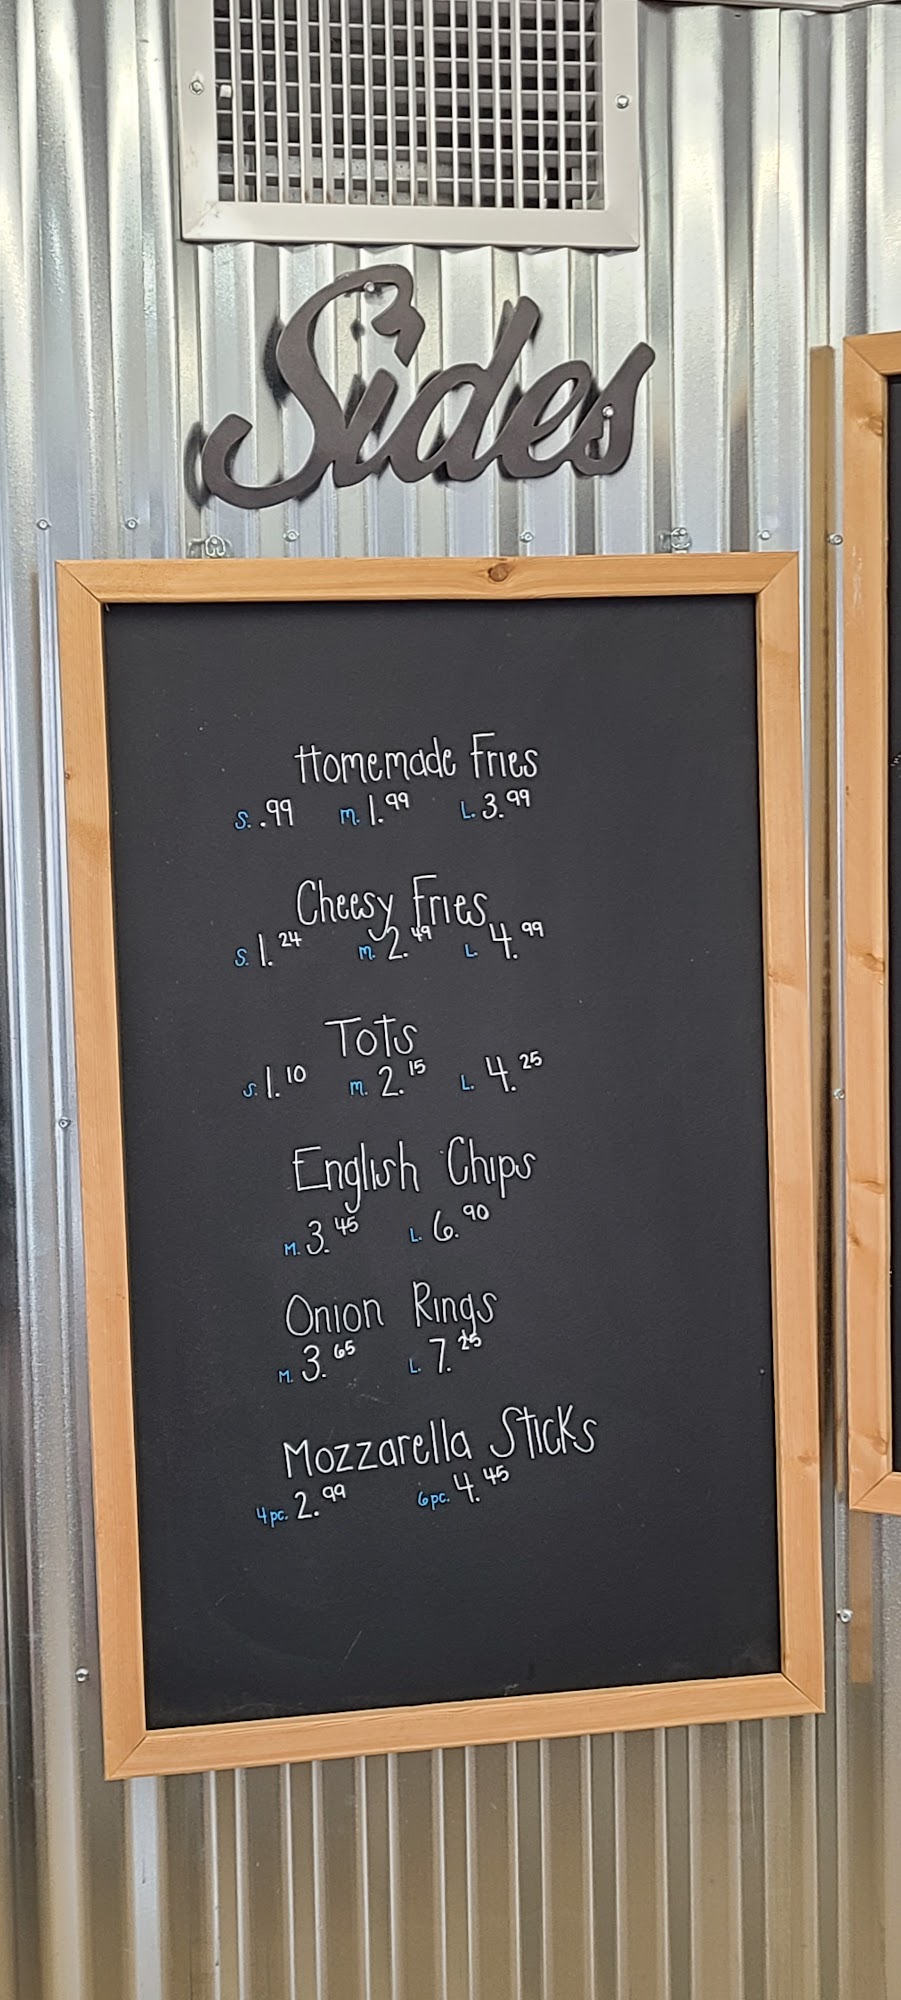 Sides
Homemade Fries
S. .99 M. 1.99 L. 3.99
Cheesy Fries
S. 1.24 M. 2.49 L. 4.99
Tots
S. 1.10 M. 2.15 L. 4.25
English Chips
M. 3.45 L. 6.90
Onion Rings
M. 3.65 L. 7.25
Mozzarella Sticks
4pc. 2.99 6pc. 4.45